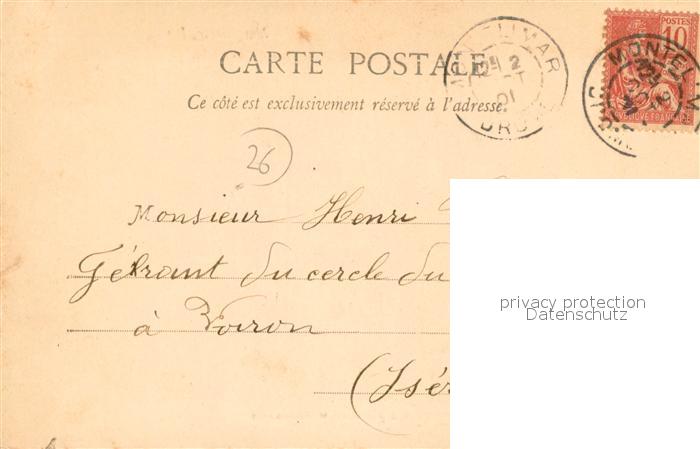 CARTE POSTALE
Ce côté est exclusivement réservé à l'adresse.
MONTELIMAR
DROME
01
POSTES
10
REPUBLIQUE FRANÇAISE
MONTEL
26
Monsieur Henri
Gérant du cercle du
à Voiron
(Isér
privacy protection
Datenschutz